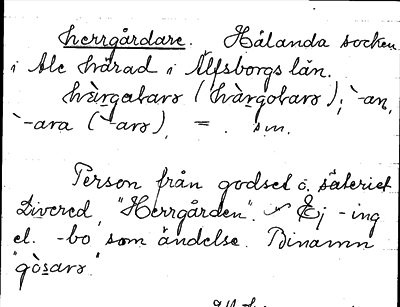 herrgårdare. Hålanda socken
i Ale härad i Älfsborgs län.
hàrgabarə (hàrgobarə); `-an,
`-ara (`-arə), = . sm.
Person från godset o. säteriet
Livered, "Herrgården". Ej -ing
el. -bo som ändelse. Binamn
"gòsarə"